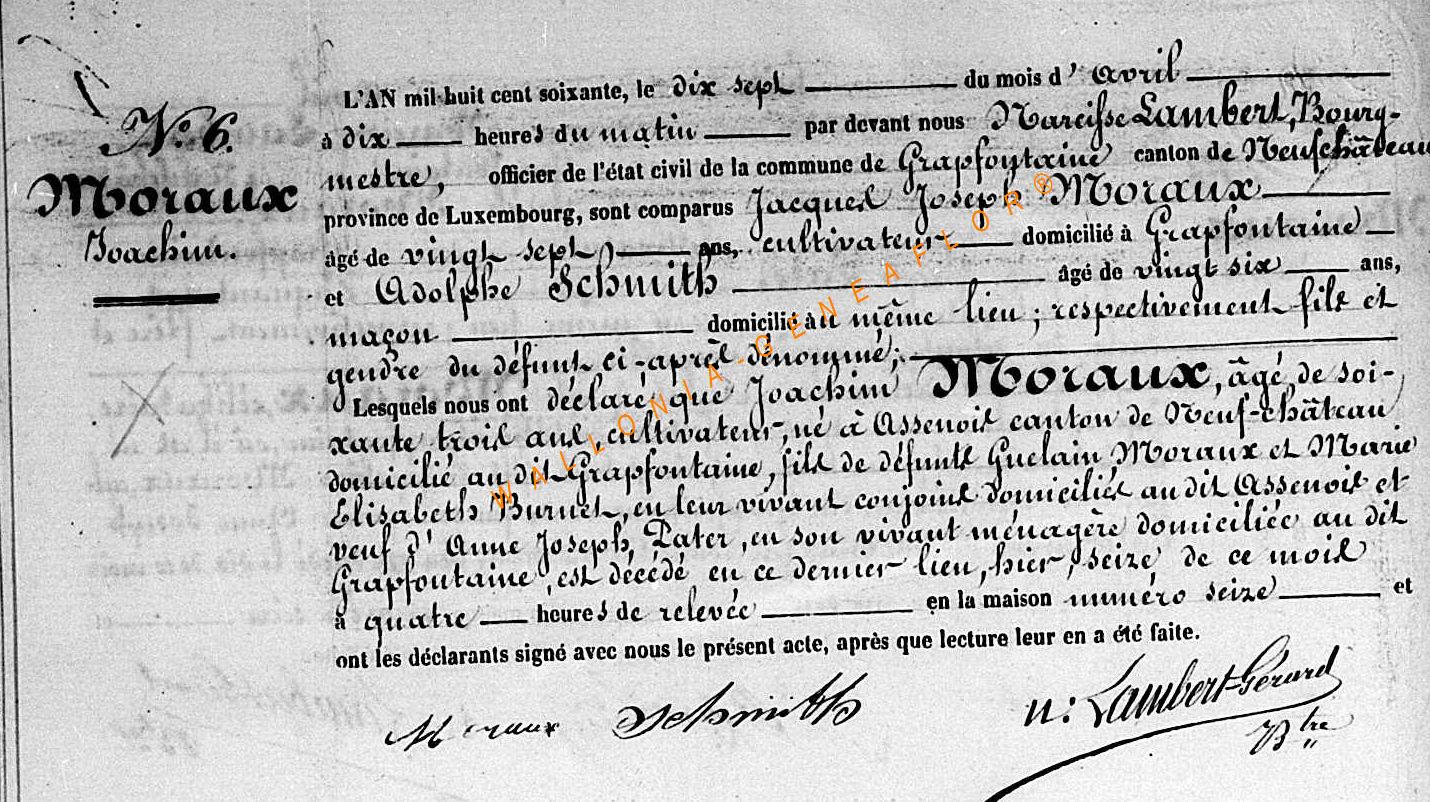 N.° 6.
Moraux
Joachim.
L'AN mil huit cent soixante, le dix sept du mois d' avril
à dix heures du matin par devant nous Narcisse Lambert, Bourg-
mestre, officier de l'état civil de la commune de Grapfontaine canton de Neufchâteau
province de Luxembourg, sont comparus Jacques Joseph Moraux
âgé de vingt sept ans, cultivateur domicilié à Grapfontaine
et Adolphe Schmith âgé de vingt six ans,
maçon domicilié au même lieu ; respectivement fils et
gendre du défunt ci-après dénommé ;
Lesquels nous ont déclaré que Joachim Moraux, âgé de soi-
xante trois ans, cultivateur, né à Assenois canton de Neuf-château
domicilié au dit Grapfontaine, fils de défunts Guelain Moraux et Marie
Elisabeth Burnet, en leur vivant conjoins domiciliés au dit Assenois et
veuf d'Anne Joseph Pater, en son vivant ménagère domiciliée au dit
Grapfontaine, est décédé en ce dernier lieu, hier, seize de ce mois
à quatre heures de relevée en la maison numéro seize et
ont les déclarants signé avec nous le présent acte, après que lecture leur en a été faite.
Moraux Schmith n: Lambert-Gérard
Btre
WALLONIA-GENEAFLOR®